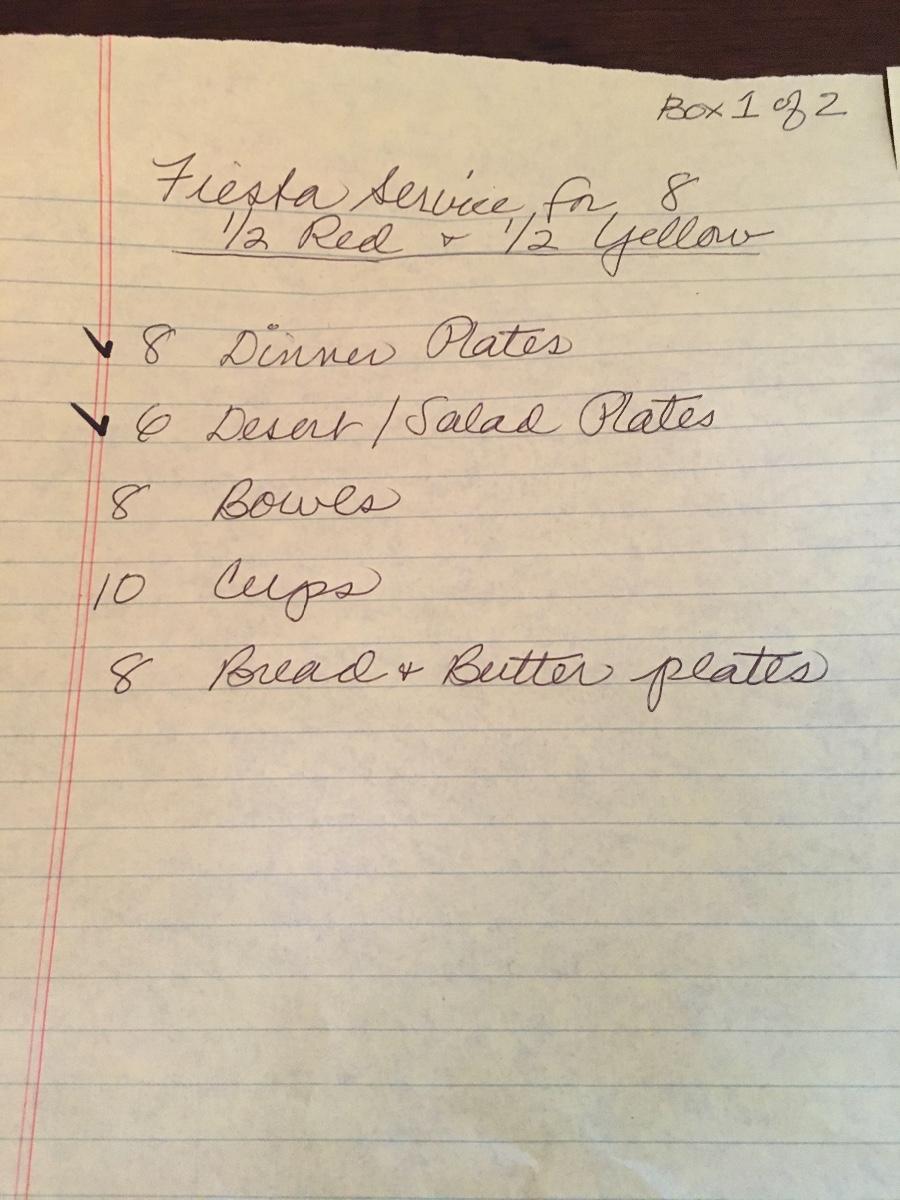 Box 1 of 2
Fiesta Service for 8
1/2 Red & 1/2 Yellow
✓ 8 Dinner Plates
✓ 6 Desert/Salad Plates
8 Bowls
10 Cups
8 Bread & Butter plates